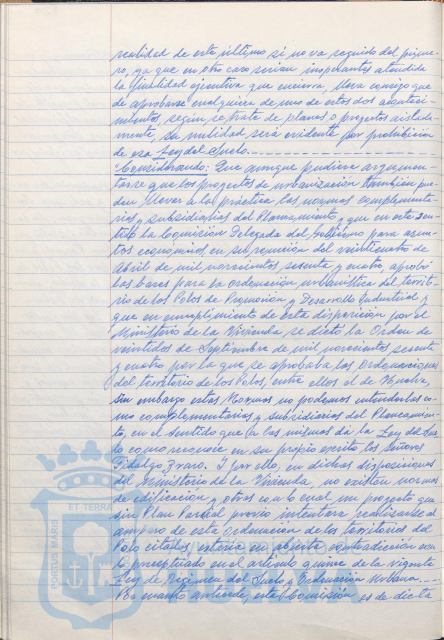 realidad de este último si no va seguido del prime-
ro, ya que en otro caso serian inoperantes atendida
la finalidad ejecutiva que encierra, lleva consigo que
de aprobarse cualquiera de uno de estos dos aconteci-
mientos, según, se trate de planes o proyectos aislada-
mente, su nulidad, será evidente por prohibición
de esa Ley del Suelo.
"Considerando: Que aunque pudiera argumen-
tarse que los proyectos de urbanización también pue-
den llevar a la práctica las normas complementa-
rias y subsidiarias del Planeamiento, y que en este sen-
tido la Comisión Delegada del Gobierno para asun-
tos económicos, en su reunión del veinticuatro de
Abril de mil novecientos sesenta y cuatro, aprobó
las bases para la ordenación urbanística del territo-
rio de los Polos de Promoción y Desarrollo Industrial y
que en cumplimiento de esta disposición por el
Ministerio de la Vivienda, se dictó la Orden de
veintidos de Septiembre de mil novecientos sesenta
y cuatro por la que se aprobaba las Ordenaciones
del territorio de los Polos, entre ellos el de Huelva,
sin embargo estas Normas no podemos entenderlas co-
mo complementarias y subsidiarias del Planeamien-
to, en el sentido que a las mismas dá la Ley del Sue-
lo como reconoce en su propio escrito los Señores
Fidalgo Bravo. Y por ello, en dichas disposiciones
del Ministerio de la Vivienda, no existen normas
de edificación y otras con lo cual un proyecto que
sin Plan Parcial previo intentara realizarse al
amparo de esta ordenación de los territorios del
Polo citados, estaria en abierta contradicción con
lo preceptuado en el artículo quince de la vigente
Ley de Régimen del Suelo y Ordenación Urbana.
Por cuanto antecede, esta Comisión es de dicta
PORTUS MARIS ET TERRAE